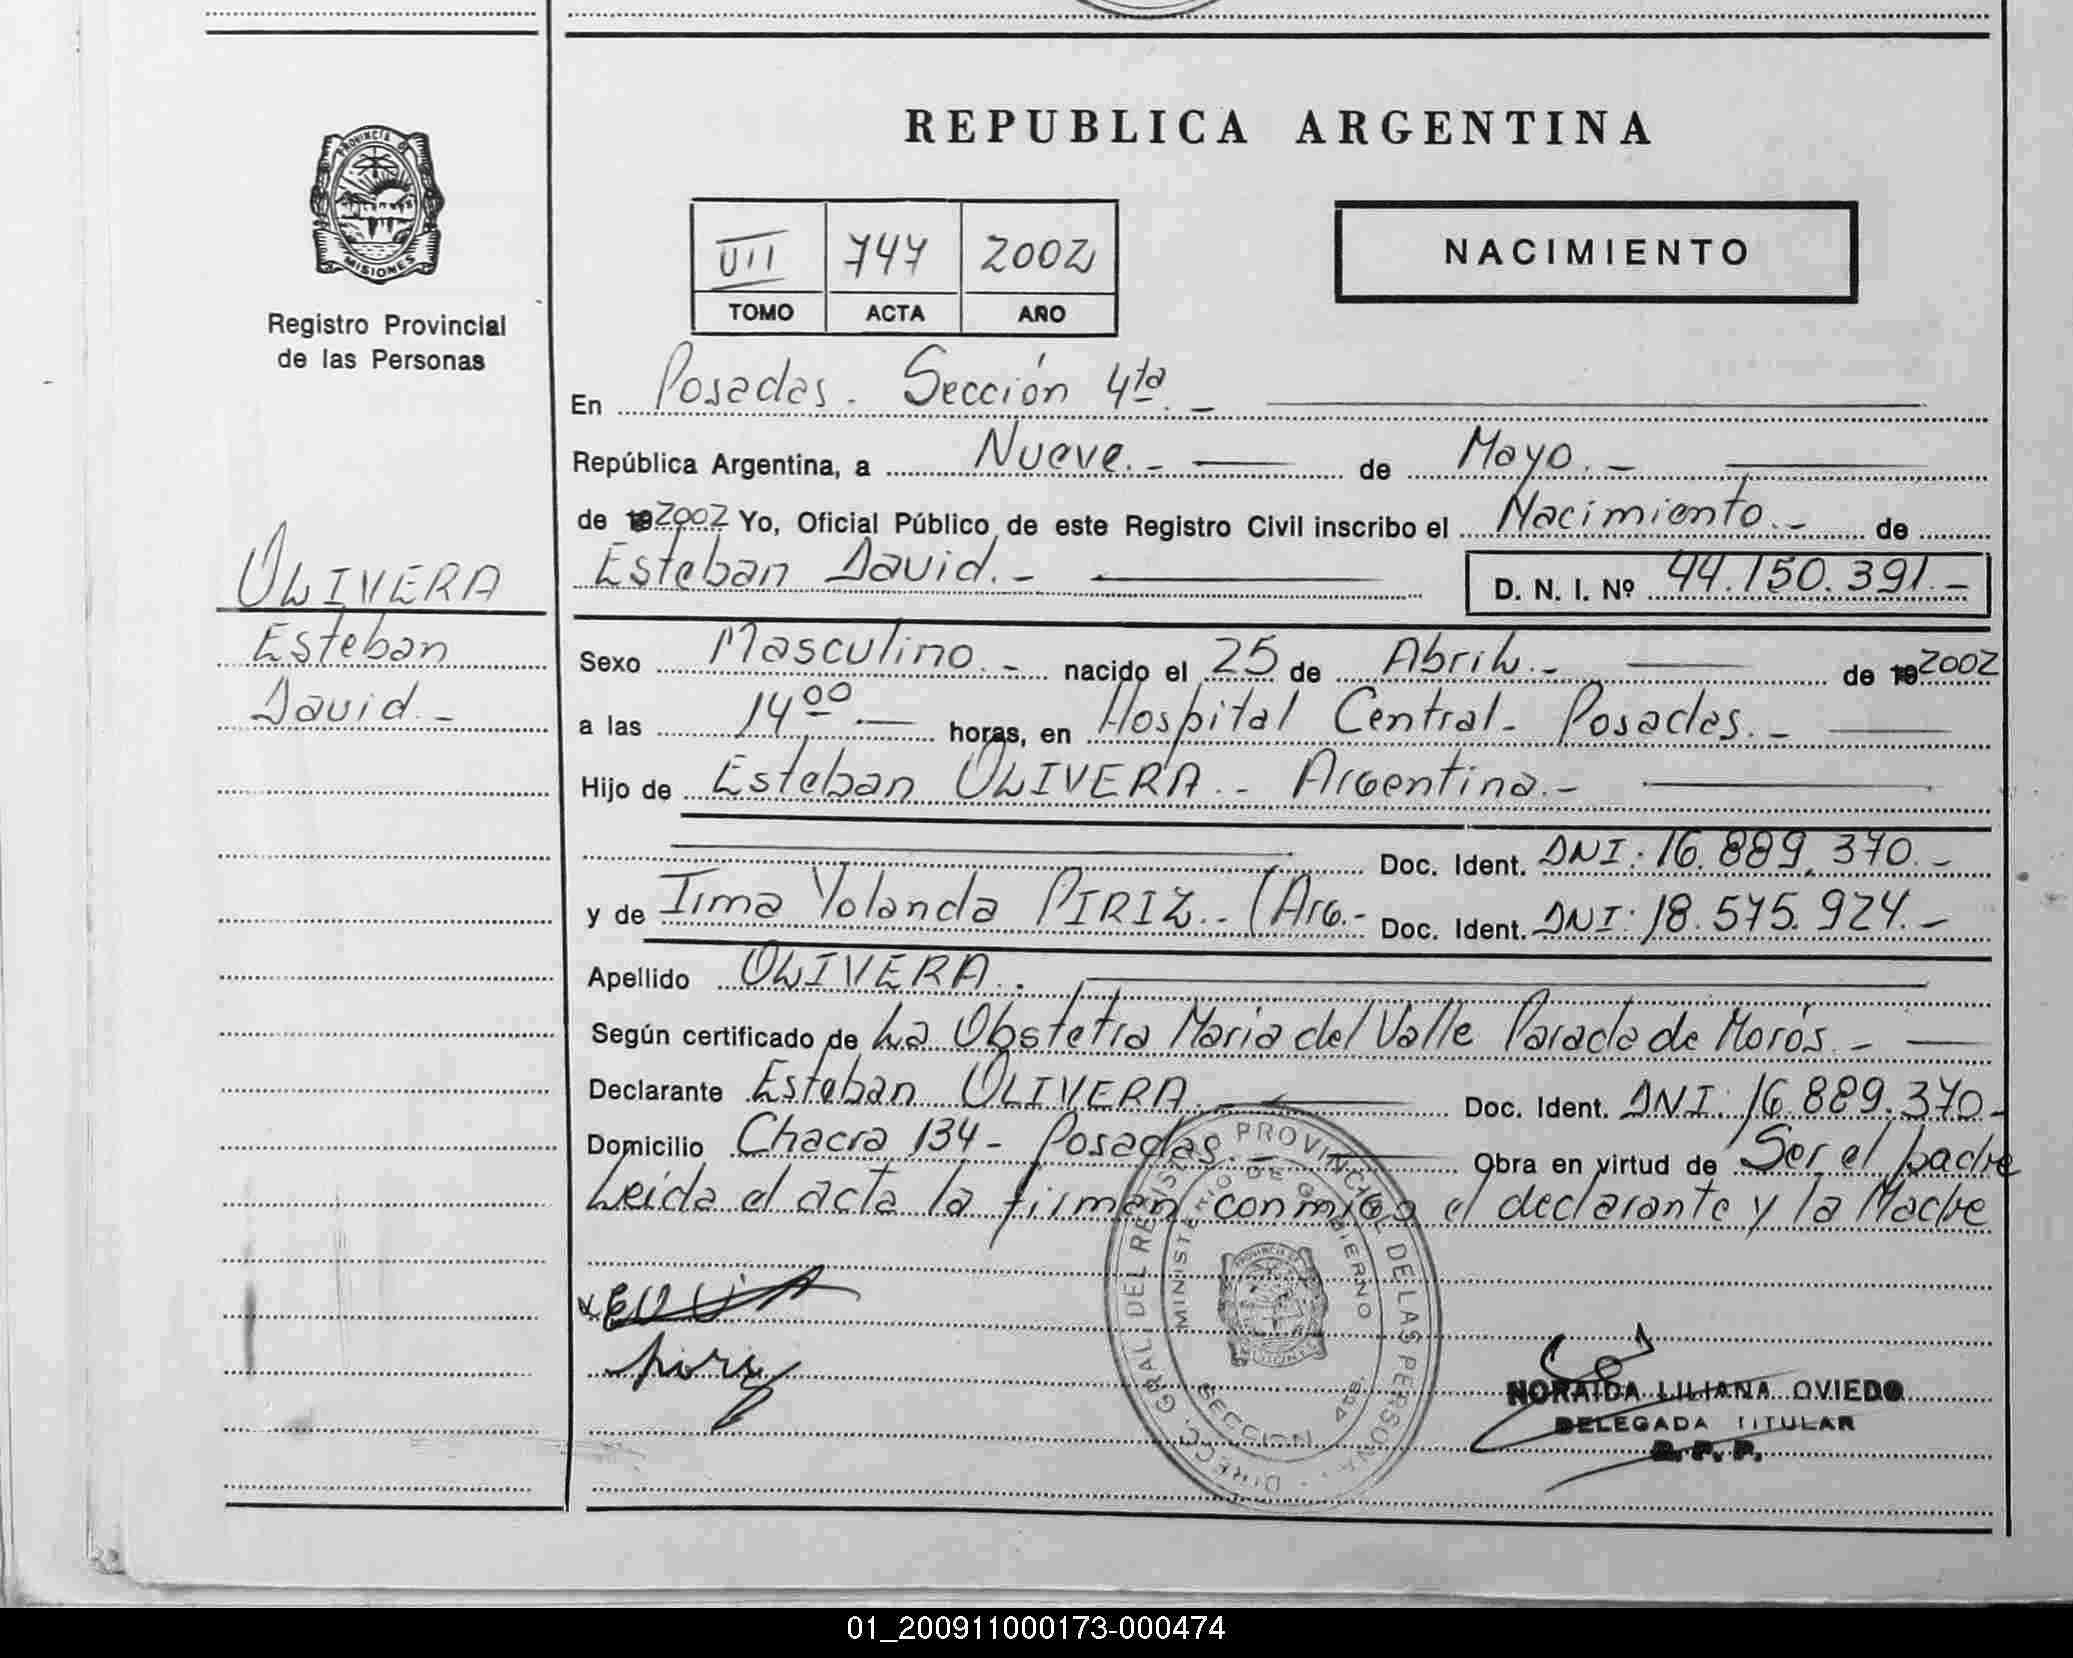 REPUBLICA ARGENTINA
PROVINCIA DE
MISIONES
Registro Provincial
de las Personas
VII 747 2002
TOMO ACTA AÑO
NACIMIENTO
En Posadas. Sección 4ta.-
República Argentina, a Nueve.- de Mayo.-
de 192002 Yo, Oficial Público de este Registro Civil inscribo el Nacimiento.- de
Esteban David.- D. N. I. Nº 44.150.391.-
OLIVERA
Esteban
David.-
Sexo Masculino.- nacido el 25 de Abril.- de 192002
a las 14 00 horas, en Hospital Central- Posadas.-
Hijo de Esteban OLIVERA.- Argentina.-
Doc. Ident. DNI: 16.889.370.-
y de Irma Yolanda PIRIZ.- (Arg.- Doc. Ident. DNI: 18.575.924.-
Apellido OLIVERA.
Según certificado de La Obstetra Maria del Valle Parada de Morós.-
Declarante Esteban OLIVERA Doc. Ident. DNI: 16.889.370-
Domicilio Chacra 134- Posadas.- Obra en virtud de Ser el padre
Leída el acta la firman conmigo el declarante y la Madre
DIRECC. GRAL. DEL REGISTRO PROVINCIAL DE LAS PERSONAS
MINISTERIO DE GOBIERNO
SECCION 4ta.
piriz
NORAIDA LILIANA OVIEDO
DELEGADA TITULAR
R. P. P.
01_200911000173-000474